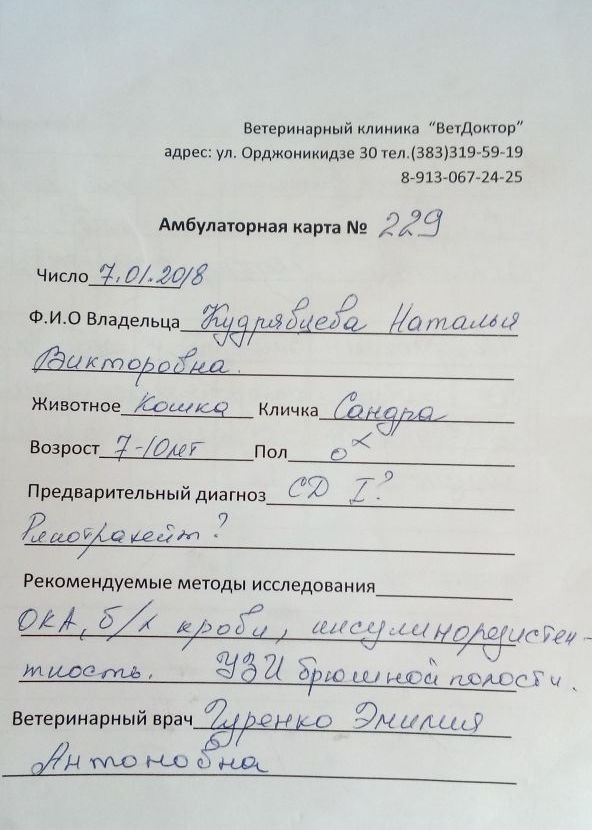 Ветеринарный клиника "ВетДоктор"
адрес: ул. Орджоникидзе 30 тел.(383)319-59-19
8-913-067-24-25
Амбулаторная карта № 229
Число 7.01.2018
Ф.И.О Владельца Кудрявцева Наталья
Викторовна.
Животное Кошка Кличка Сандра
Возрост 7-10лет Пол
Предварительный диагноз СД I?
Ринотрахеит?
Рекомендуемые методы исследования
ОКА, б/х крови, инсулинорезистен-
тность. УЗИ брюшной полости.
Ветеринарный врач Гуренко Эмилия
Антоновна